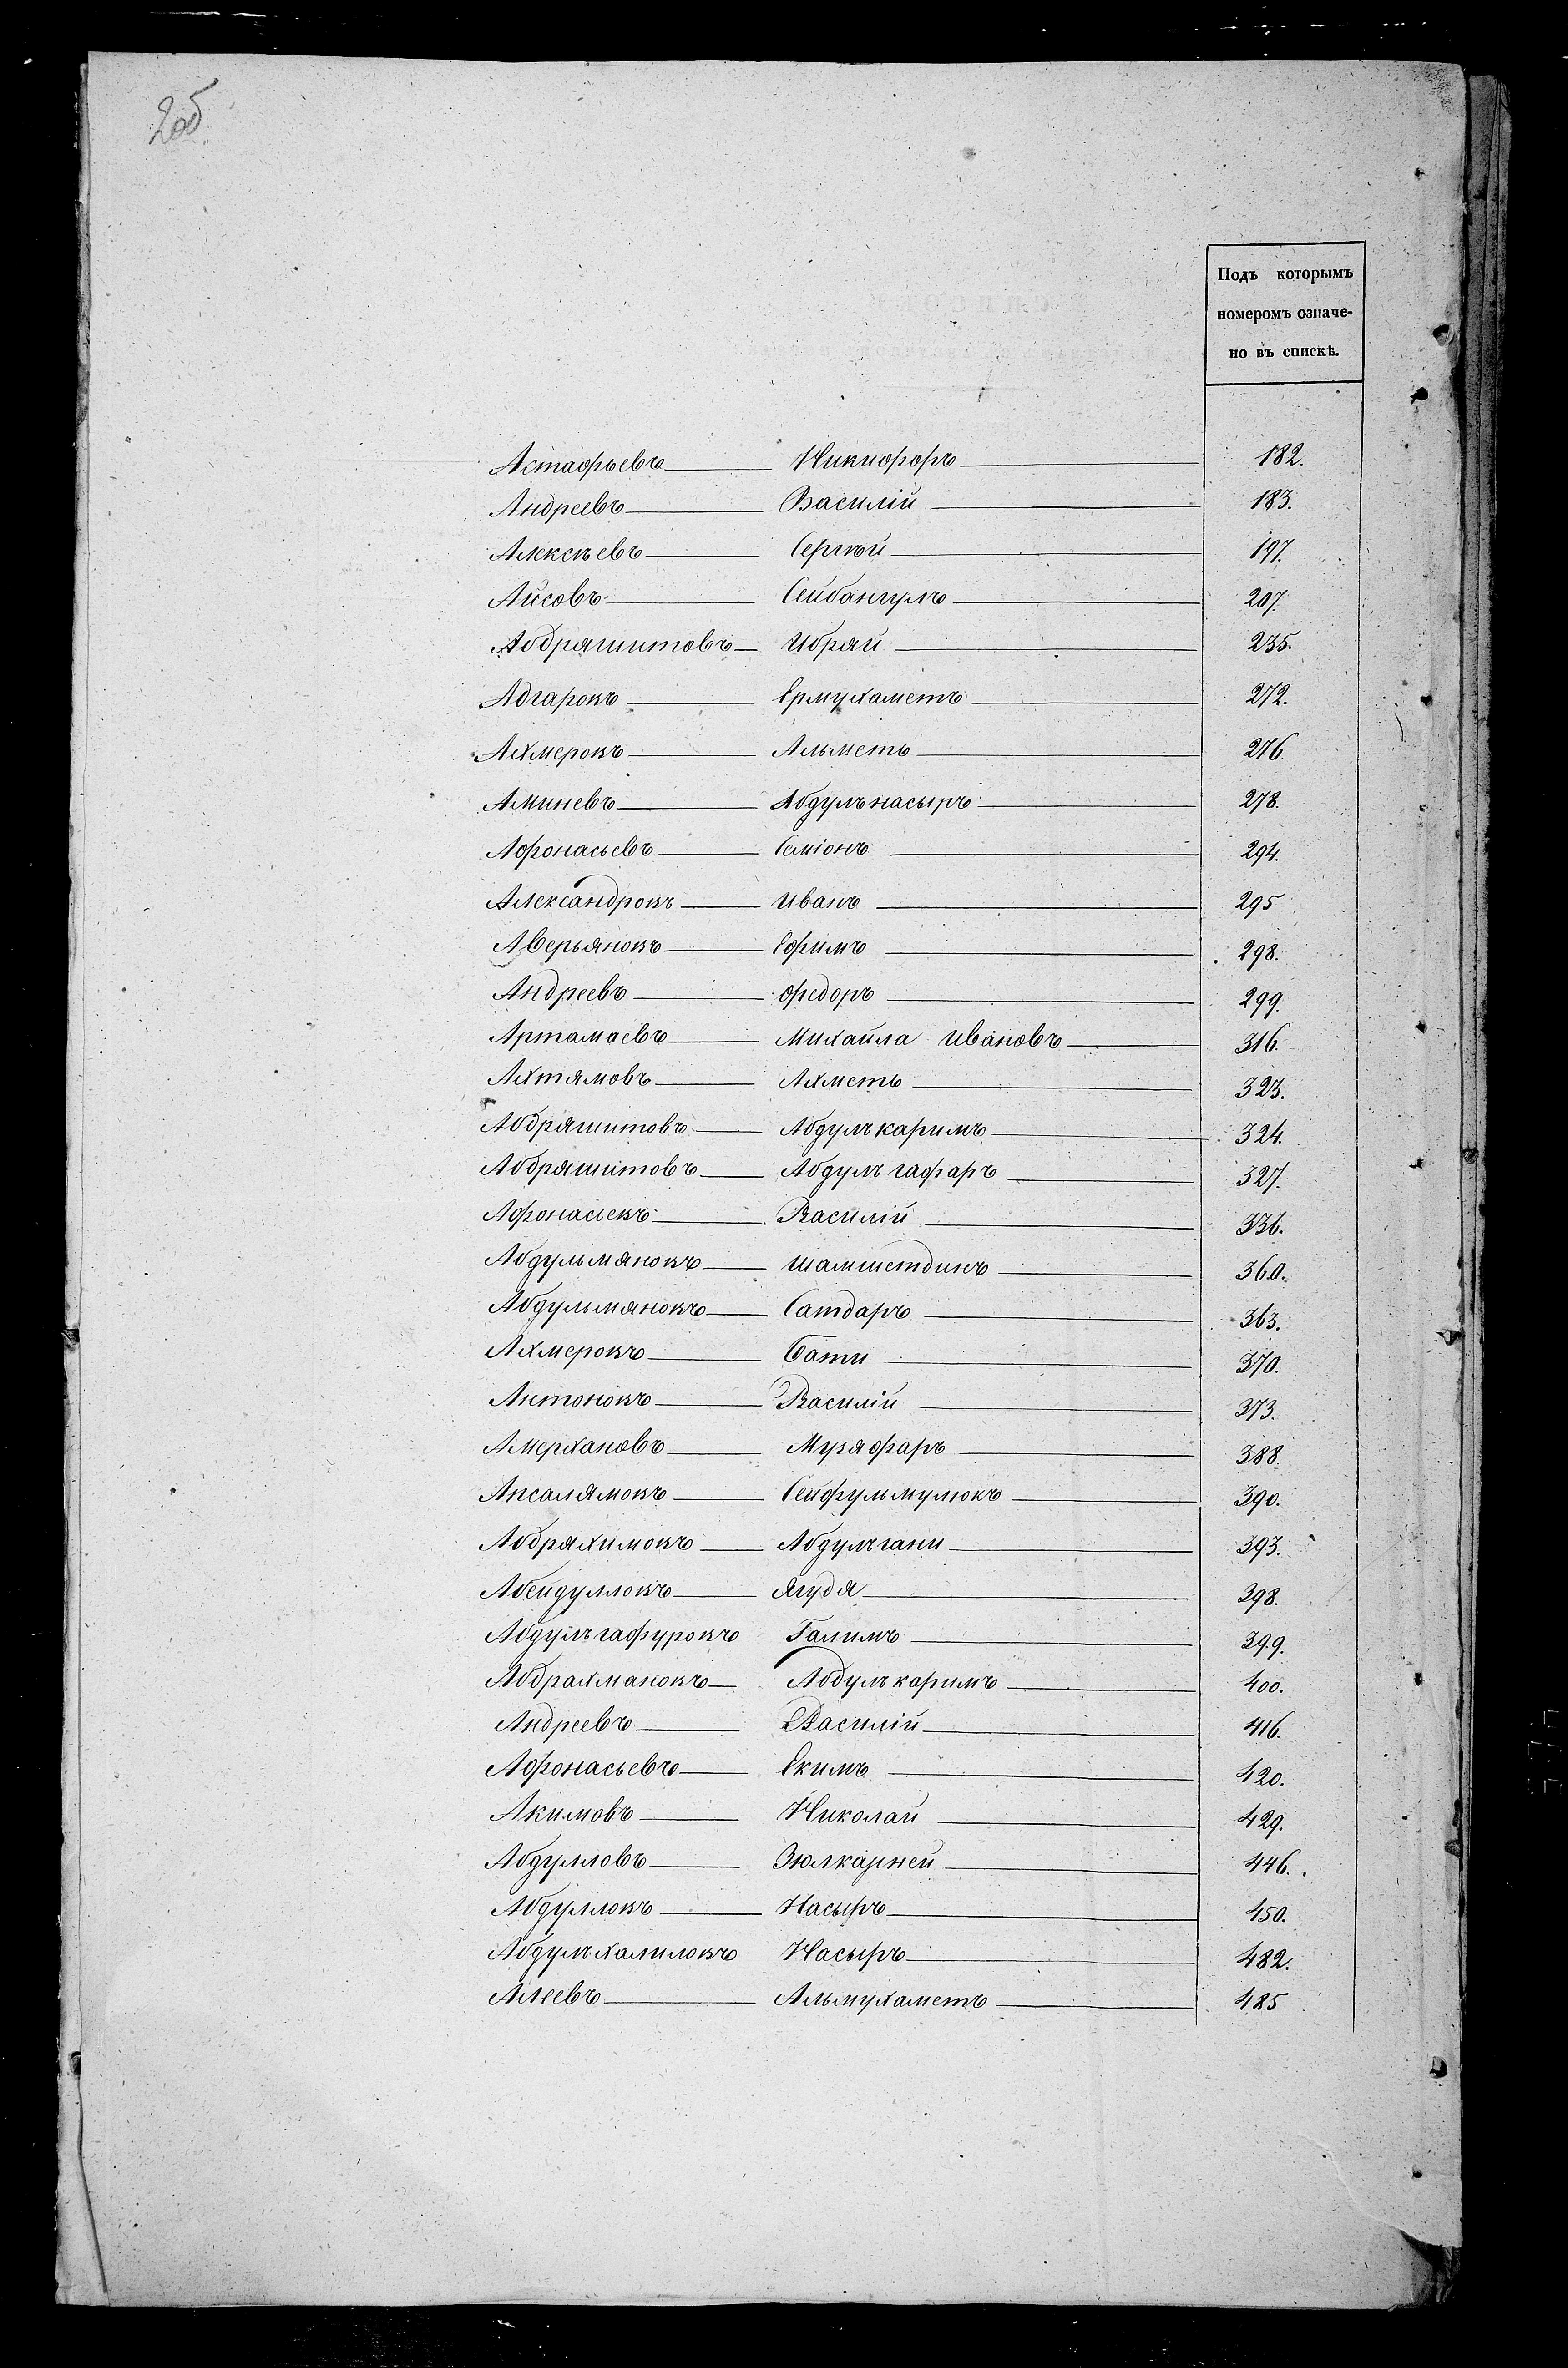 2об
Подъ которымъ
номеромъ означе-
но въ спискѣ.
Астафьевъ Никифоръ 182.
Андреевъ Василій 183.
Алексѣевъ Сергѣй 197.
Аисовъ Сейбангулъ 207.
Абдряшитовъ Ибряй 235.
Адгаровъ Ермухаметъ 272.
Ахмеровъ Альметь 276
Аминевъ Абдулънасыръ 278.
Афонасьевъ Семіонъ 294.
Александровъ Иванъ 295
Аверьяновъ Ефимъ 298.
Андреевъ Федоръ 299.
Артамаевъ Михайла Ивановъ 316.
Ахтямовъ Ахметь 323.
Абдряшитовъ Абдулъкаримъ 324.
Абдряшитовъ Абдулъгафаръ 327.
Афонасьевъ Василій 336.
Абдульмяновъ Шамшетдинъ 360.
Абдульмяновъ Сатдаръ 363.
Ахмеровъ Бати 370.
Антоновъ Василій 373.
Амерхановъ Музяфаръ 388.
Апсалямовъ Сейфульмулюкъ 390.
Абдряхимовъ Абдулъгани 393.
Абейдулловъ Ягудя 398.
Абдулъгафуровъ Галимъ 399.
Абдрахмановъ Абдулъкаримъ 400.
Андреевъ Василій 416.
Афонасьевъ Екимъ 420.
Акимовъ Николай 429.
Абдулловъ Зюлкарней 446.
Абдулловъ Насыръ 450.
Абдулъхалиловъ Насыръ 482.
Алеевъ Альмухаметъ 485